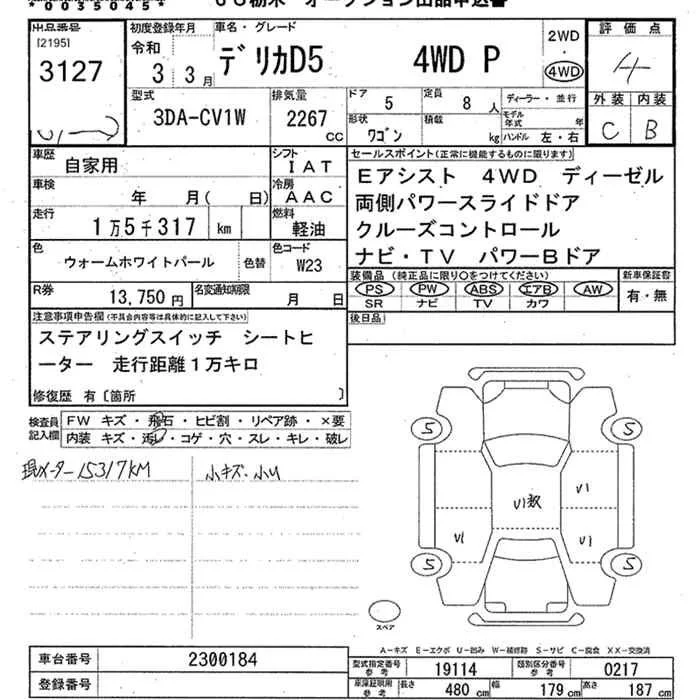 *0055045*
出品番号
[2195]
3127
初度登録年月
令和
3 3月
車名・グレード
デリカD5 4WD P
2WD
・
4WD
評価点
4
型式
3DA-CV1W
排気量
2267
CC
ドア
5
定員
8 人
ディーラー・並行
モデル年式 年
形状
ワゴン
積載
kg
ハンドル 左・右
外装 内装
C B
車歴
自家用
シフト
IAT
車検
年 月( 日)
冷房
AAC
走行
1万5千317 km
燃料
軽油
色
ウォームホワイトパール
色替
色コード
W23
R券
13,750円
名変通知期限
月 日
セールスポイント(正常に機能するものに限ります)
Eアシスト 4WD ディーゼル
両側パワースライドドア
クルーズコントロール
ナビ・TV パワーBドア
装備品 (純正品に限り○をつけてください)
PS PW ABS エアB AW
SR ナビ TV カワ
新車保証書
有・無
後日品
注意事項申告欄(不具合内容等は具体的に記入して下さい)
ステアリングスイッチ シートヒ
ーター 走行距離1万キロ
修復歴 有〔箇所 〕
検査員
記入欄
FW キズ・飛石・ヒビ割・リペア跡・×要
内装 キズ・汚レ・コゲ・穴・スレ・キレ・破レ
現メーター15317KM
小キズ・小U
S S
U1
U1数
U1 U1
S S
スペア
A-キズ E-エクボ U-凹み W-補修跡 S-サビ C-腐食 XX-交換済
車台番号
2300184
登録番号
型式指定番号
参考
19114
類別区分番号
参考
0217
車庫証明用
参考
長さ
480 cm
幅
179 cm
高さ
187 cm